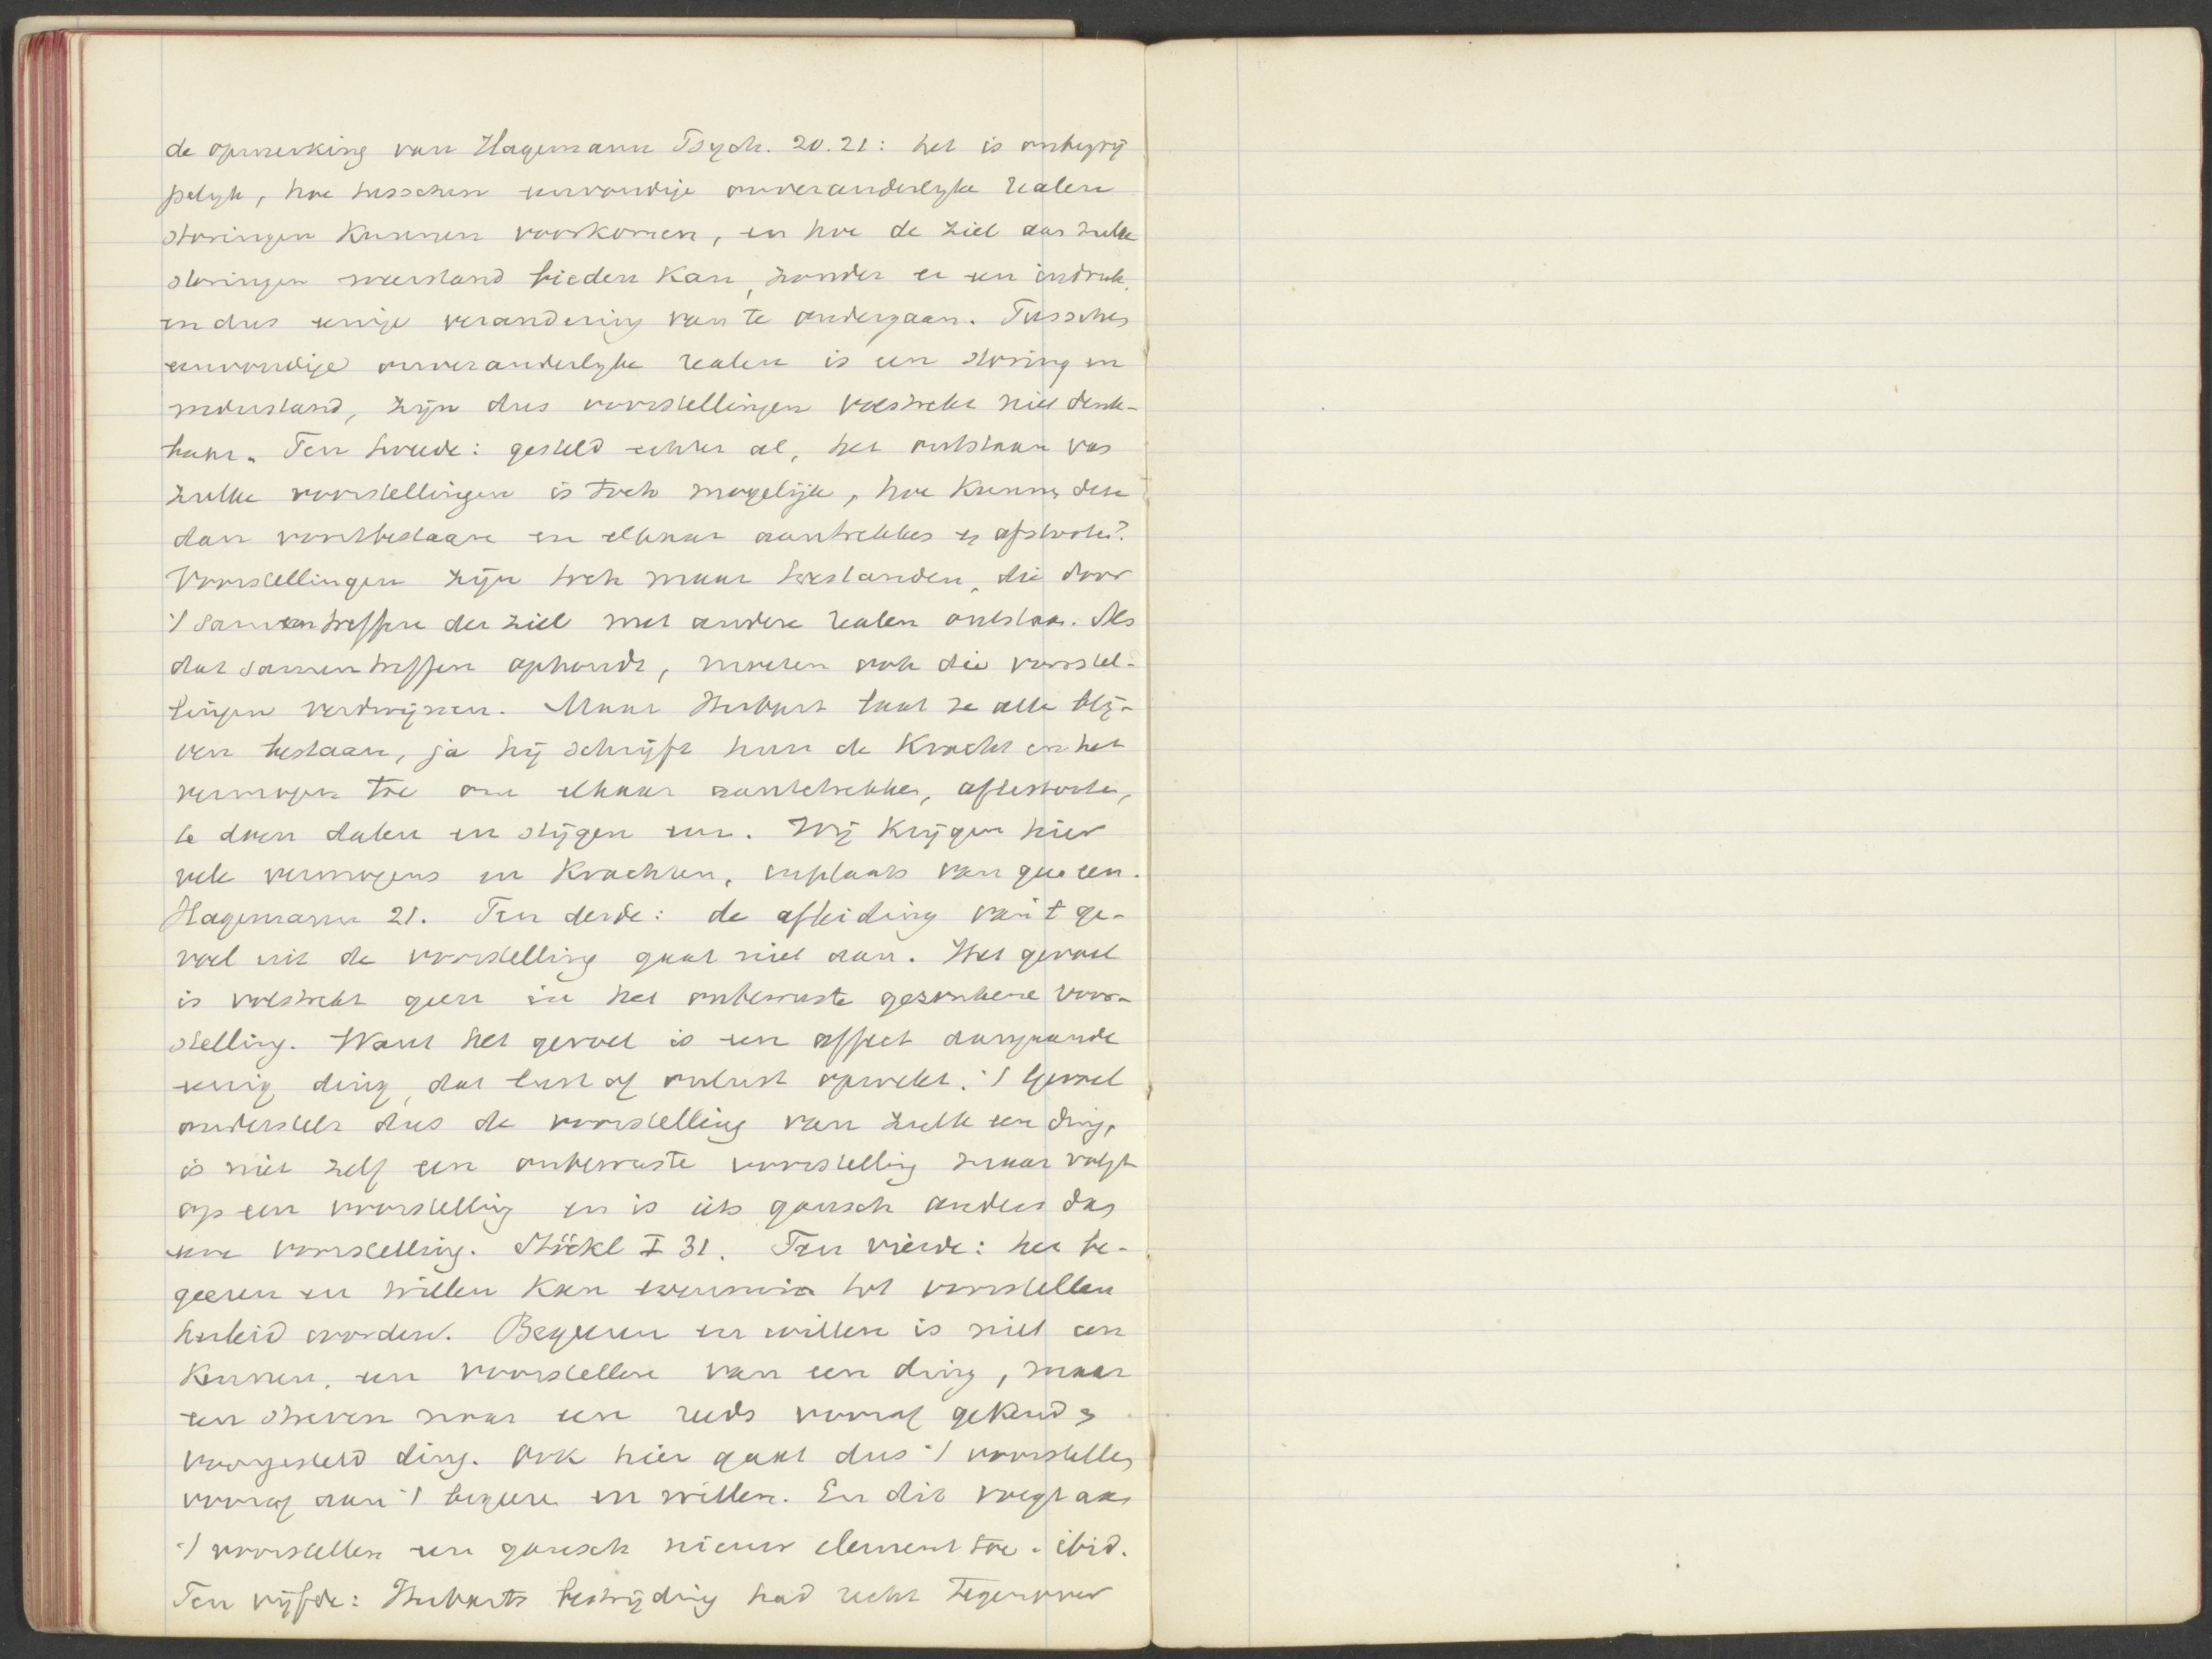 de opmerking van Hagemann Psych. 20.21: het is onbegrij
pelyk, hoe tusschen eenvoudige onveranderlyke realen
storingen kunnen voorkomen, en hoe de ziel aan zulke
storingen weerstand bieden kan, zonder er een indruk,
en dus eenige verandering van te ondergaan. Tusschen
eenvoudige onveranderlyke realen is een storing en
wederstand, zijn dus voorstellingen volstrekt niet denk-
baar. Ten tweede: gesteld echter al, het ontstaan van
zulke voorstellingen is toch mogelijk, hoe kunnen deze
dan voortbestaan en elkaar aantrekken en afstooten?
Voorstellingen zijn toch maar toestanden, die door
't samentreffen der ziel met andere realen ontstaan. Als
dat samentreffen ophoudt, moeten ook die voorstel-
lingen verdwijnen. Maar Herbart laat ze alle blij-
ven bestaan, ja hij schrijft hun de kracht en het
vermogen toe om elkaar aantetrekken, aftestooten,
te doen dalen en stijgen enz. Wij krijgen hier
vele vermogens en krachten, inplaats van geen een.
Hagemann 21. Ten derde: de afleiding van 't ge-
voel uit de voorstelling gaat niet aan. Het gevoel
is volstrekt geen in het onbewuste gezonkene voor-
stelling. Want het gevoel is een affect aangaande
eenig ding, dat lust of onlust opwekt. 't Gevoel
onderstelt dus de voorstelling van zulk een ding,
is niet zelf een onbewuste voorstelling maar volgt
op een voorstelling en is iets gansch anders dan
eene voorstelling. Stöckl I 31. Ten vierde: het be-
geeren en willen kan evenmin tot voorstellen
herleid worden. Begeeren en willen is niet een
kennen, een voorstellen van een ding, maar
een streven naar een reeds vooraf gekend en
voorgesteld ding. Ook hier gaat dus 't voorstellen
vooraf aan 't begeeren en willen. En dit voegt aan
't voorstellen een gansch nieuw element toe. ibid.
Ten vijfde: Herbarts bestrijding had recht tegenover